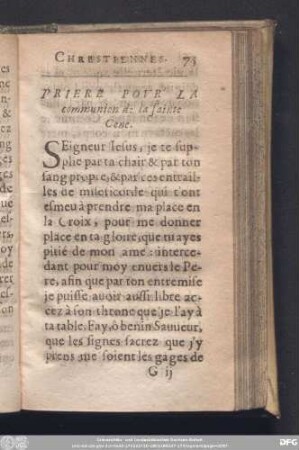 CHRESTIENNES. 73
PRIERE POVR LA
communion de la sainte
Cene.
SEigneur Iesus, je te sup-
plie par ta chair & par ton
sang propre, & par ces entrail-
les de misericorde qui t'ont
esmeu à prendre ma place en
la Croix, pour me donner
place en ta gloire, que tu ayes
pitié de mon ame: interce-
dant pour moy enuers le Pe-
re, afin que par ton entremise
je puisse auoir aussi libre ac-
cez à son throne que je l'ay à
ta table. Fay, ô benin Sauueur,
que les signes sacrez que j'y
prens me soient les gages de
G ij